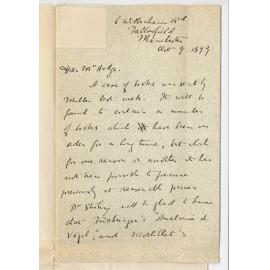 6 Wilbraham Rd
Fallowfield
Manchester
Oct 9 1899
Dear Mr Hodge.
A case of books was sent by
Muller last week. It will be
found to contain a number
of books which have been on
order for a long time, but which
for one reason or another it has
not been possible to procure
previously at reasonable prices
Dr Stirling will be glad to know
that Fürbringer's "Anatomie d
Vögel", and Mortillet's